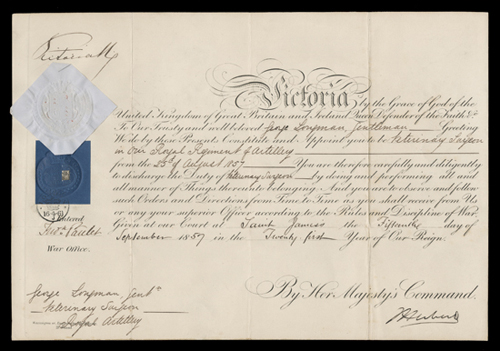 Victoria
Victoria by the Grace of God of the
United Kingdom of Great Britain and Ireland Queen Defender of the Faith &c
To Our Trusty and well beloved George Longman, Gentleman Greeting
We do by these Presents Constitute and Appoint you to be Veterinary Surgeon
in Our Royal Regiment of Artillery
from the 22d of August 1857. You are therefore carefully and diligently
to discharge the Duty of Veterinary Surgeon by doing and performing all and
all manner of Things thereunto belonging. And you are to observe and follow
such Orders and Directions from Time to Time as you shall receive from Us
or any your superior Officer according to the Rules and Discipline of War.
Given at our Court at Saint James's the Fifteenth day of
September 1857 in the Twenty first Year of Our Reign.
Entered
War Office.
By Her Majesty's Command.
George Longman Gent
Veterinary Surgeon
Royal Artillery